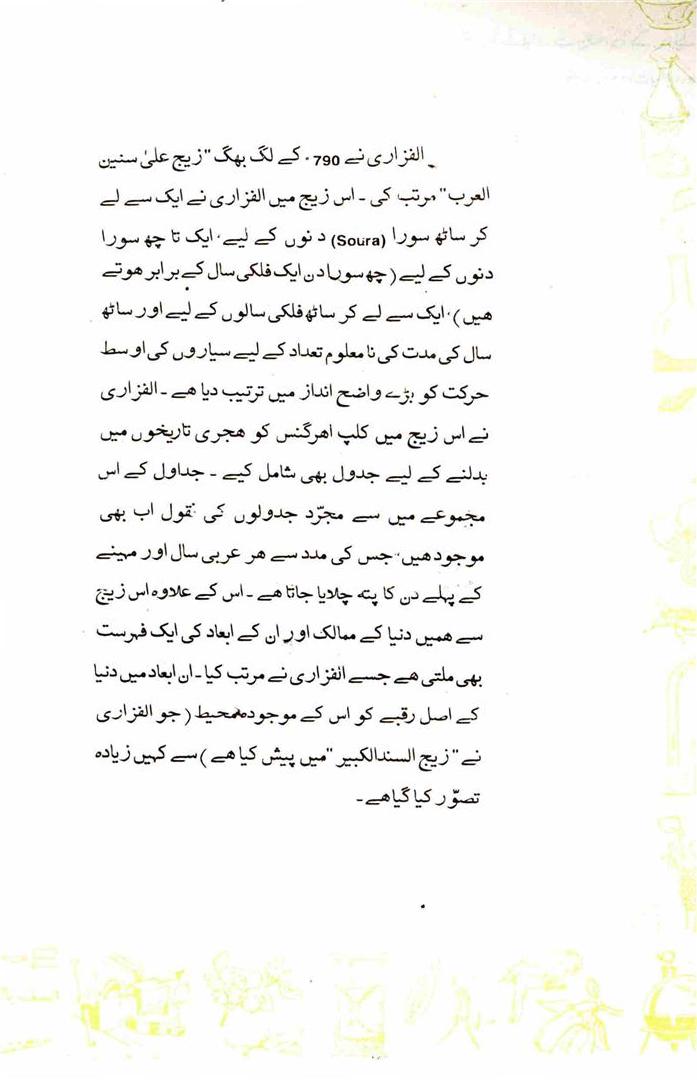 الفزاری نے 790ء کے لگ بھگ "زیج علیٰ سنین
العرب" مرتب کی ۔ اس زیج میں الفزاری نے ایک سے لے
کر ساٹھ سورا (Soura) دنوں کے لیے، ایک تا چھ سورا
دنوں کے لیے (چھ سورا دن ایک فلکی سال کے برابر ہوتے
ہیں)، ایک سے لے کر ساٹھ فلکی سالوں کے لیے اور ساٹھ
سال کی مدت کی نا معلوم تعداد کے لیے سیاروں کی اوسط
حرکت کو بڑے واضح انداز میں ترتیب دیا ہے ۔ الفزاری
نے اس زیج میں کلپ اہرگنس کو ہجری تاریخوں میں
بدلنے کے لیے جدول بھی شامل کیے ۔ جداول کے اس
مجموعے میں سے مجرّد جدولوں کی نقول اب بھی
موجود ہیں، جس کی مدد سے ہر عربی سال اور مہینے
کے پہلے دن کا پتہ چلایا جاتا ہے ۔ اس کے علاوہ اس زیج
سے ہمیں دنیا کے ممالک اور ان کے ابعاد کی ایک فہرست
بھی ملتی ہے جسے الفزاری نے مرتب کیا ۔ ان ابعاد میں دنیا
کے اصل رقبے کو اس کے موجودہ محیط (جو الفزاری
نے "زیج السندالکبیر" میں پیش کیا ہے) سے کہیں زیادہ
تصوّر کیا گیا ہے ۔